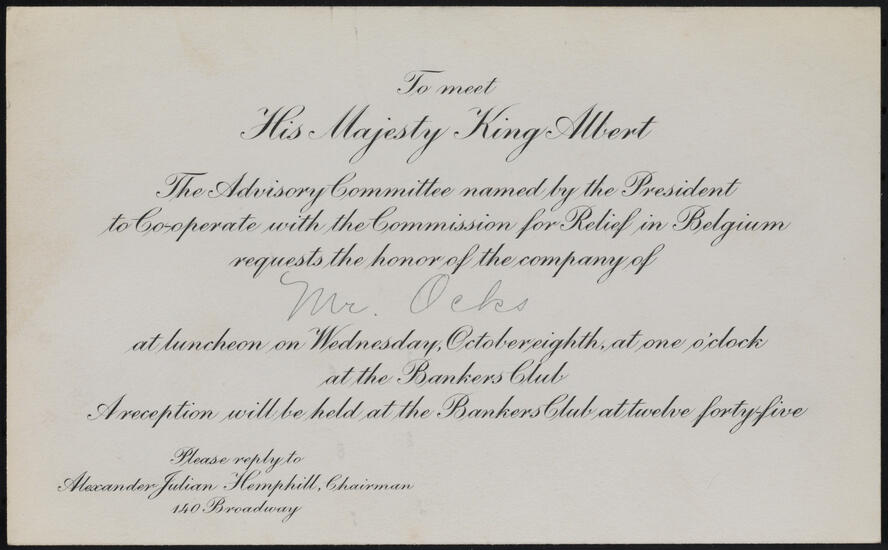 To meet
His Majesty King Albert
The Advisory Committee named by the President
to Co-operate with the Commission for Relief in Belgium
requests the honor of the company of
Mr. Ocks
at luncheon on Wednesday, October eighth, at one o'clock
at the Bankers Club
A reception will be held at the Bankers Club at twelve forty-five
Please reply to
Alexander Julian Hemphill, Chairman
140 Broadway